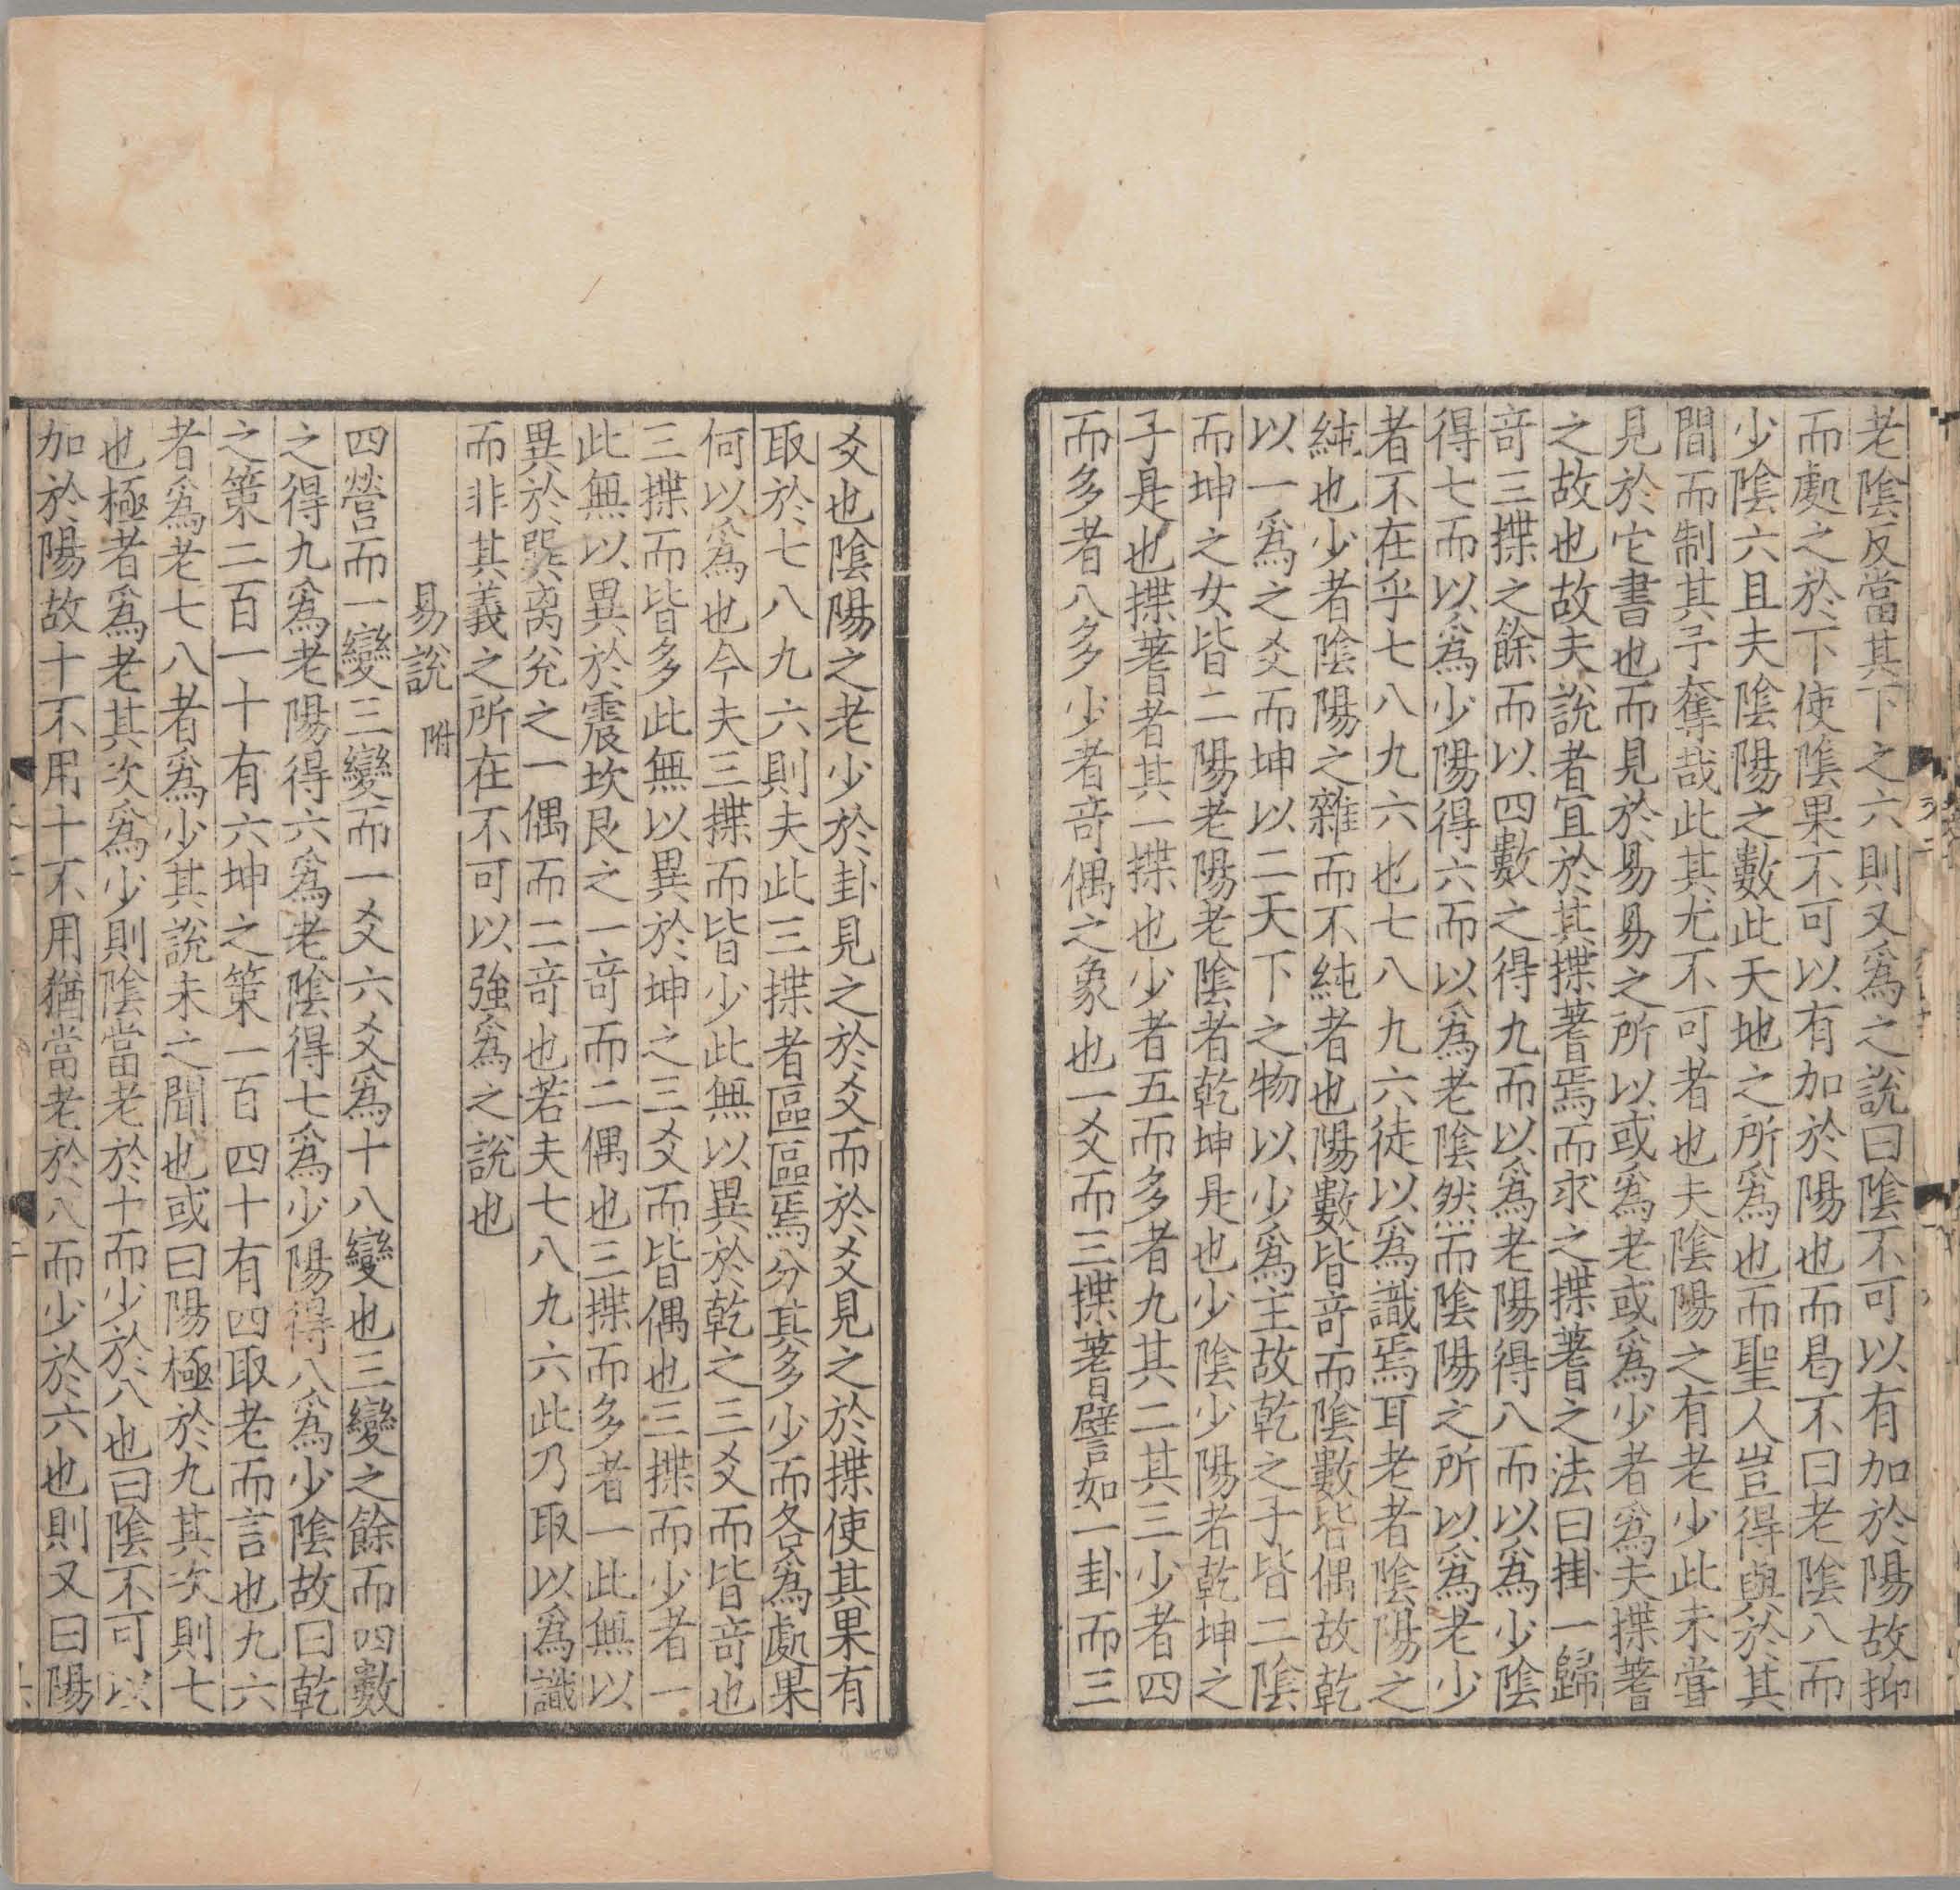 老陰反當其下之六則又爲之說曰陰不可以有加於陽故抑
而處之於下使陰果不可以有加於陽也而曷不曰老陰八而
少陰六且夫陰陽之數此天地之所爲也而聖人豈得與於其
間而制其予奪哉此其尤不可者也夫陰陽之有老少此未甞
見於它書也而見於易易之所以或爲老或爲少者爲夫揲蓍
之故也故夫說者宜於其揲蓍焉而求之揲蓍之法曰掛一歸
竒三揲之餘而以四數之得九而以爲老陽得八而以爲少陰
得七而以爲少陽得六而以爲老陰然而陰陽之所以爲老少
者不在乎七八九六也七八九六徒以爲識焉耳老者陰陽之
純也少者陰陽之雜而不純者也陽數皆竒而陰數皆偶故乾
以一爲之爻而坤以二天下之物以少爲主故乾之子皆二陰
而坤之女皆二陽老陽老陰者乾坤是也少陰少陽者乾坤之
子是也揲蓍者其一揲也少者五而多者九其二其三少者四
而多者八多少者竒偶之象也一爻而三揲蓍譬如一卦而三
爻也陰陽之老少於卦見之於爻而於爻見之於揲使其果有
取於七八九六則夫此三揲者區區焉分其多少而各爲處果
何以爲也今夫三揲而皆少此無以異於乾之三爻而皆竒也
三揲而皆多此無以異於坤之三爻而皆偶也三揲而少者一
此無以異於震坎艮之一竒而二偶也三揲而多者一此無以
異於巽离兊之一偶而二竒也若夫七八九六此乃取以爲識
而非其義之所在不可以強爲之說也
易說 附
四營而一變三變而一爻六爻爲十八變也三變之餘而四數
之得九爲老陽得六爲老陰得七爲少陽得八爲少陰故曰乾
之策二百一十有六坤之策一百四十有四取老而言也九六
者爲老七八者爲少其說未之聞也或曰陽極於九其次則七
也極者爲老其次爲少則陰當老於十而少於八也曰陰不可以
加於陽故十不用十不用猶當老於八而少於六也則又曰陽